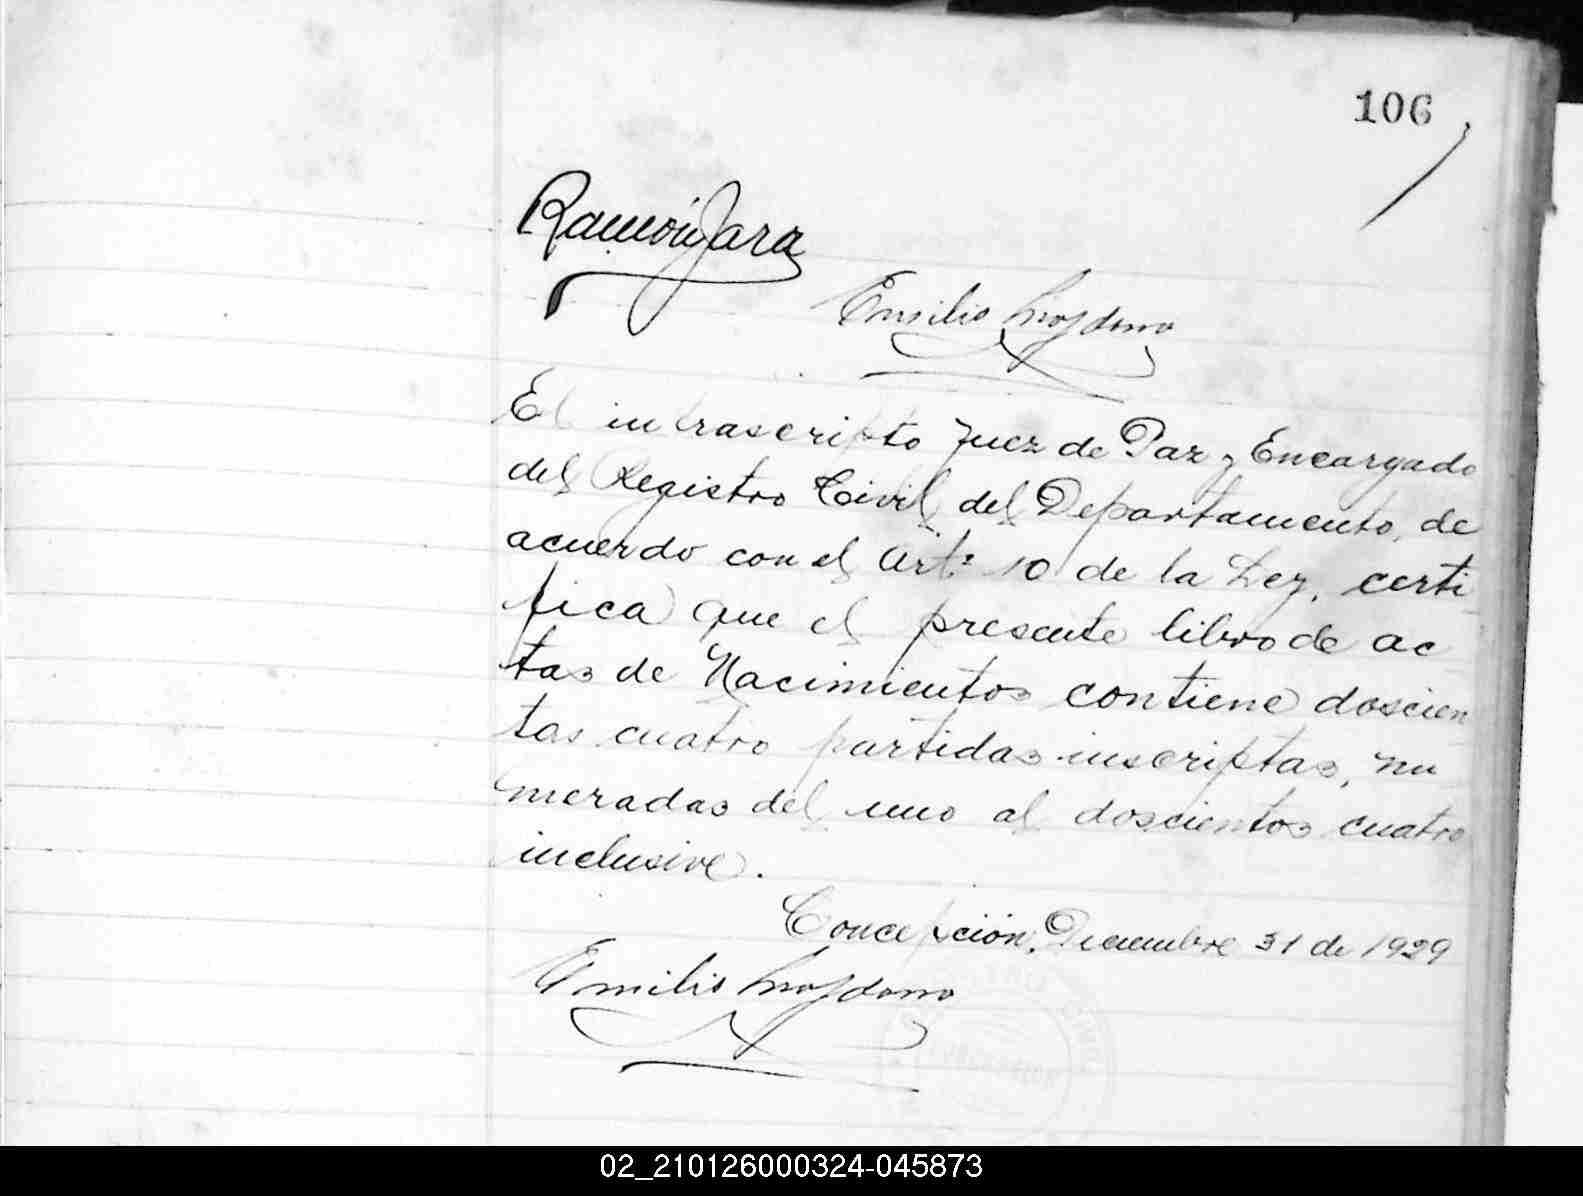 106
Ramón Jara
Emilio
El infrascripto Juez de Paz y Encargado
del Registro Civil del Departamento, de
acuerdo con el Artº 10 de la Ley, certi
fica que el presente libro de ac
tas de Nacimientos contiene doscien
tas cuatro partidas inscriptas, nu
meradas del uno al doscientos cuatro
inclusive.
Concepción, Diciembre 31 de 1929
Emilio
02_210126000324-045873